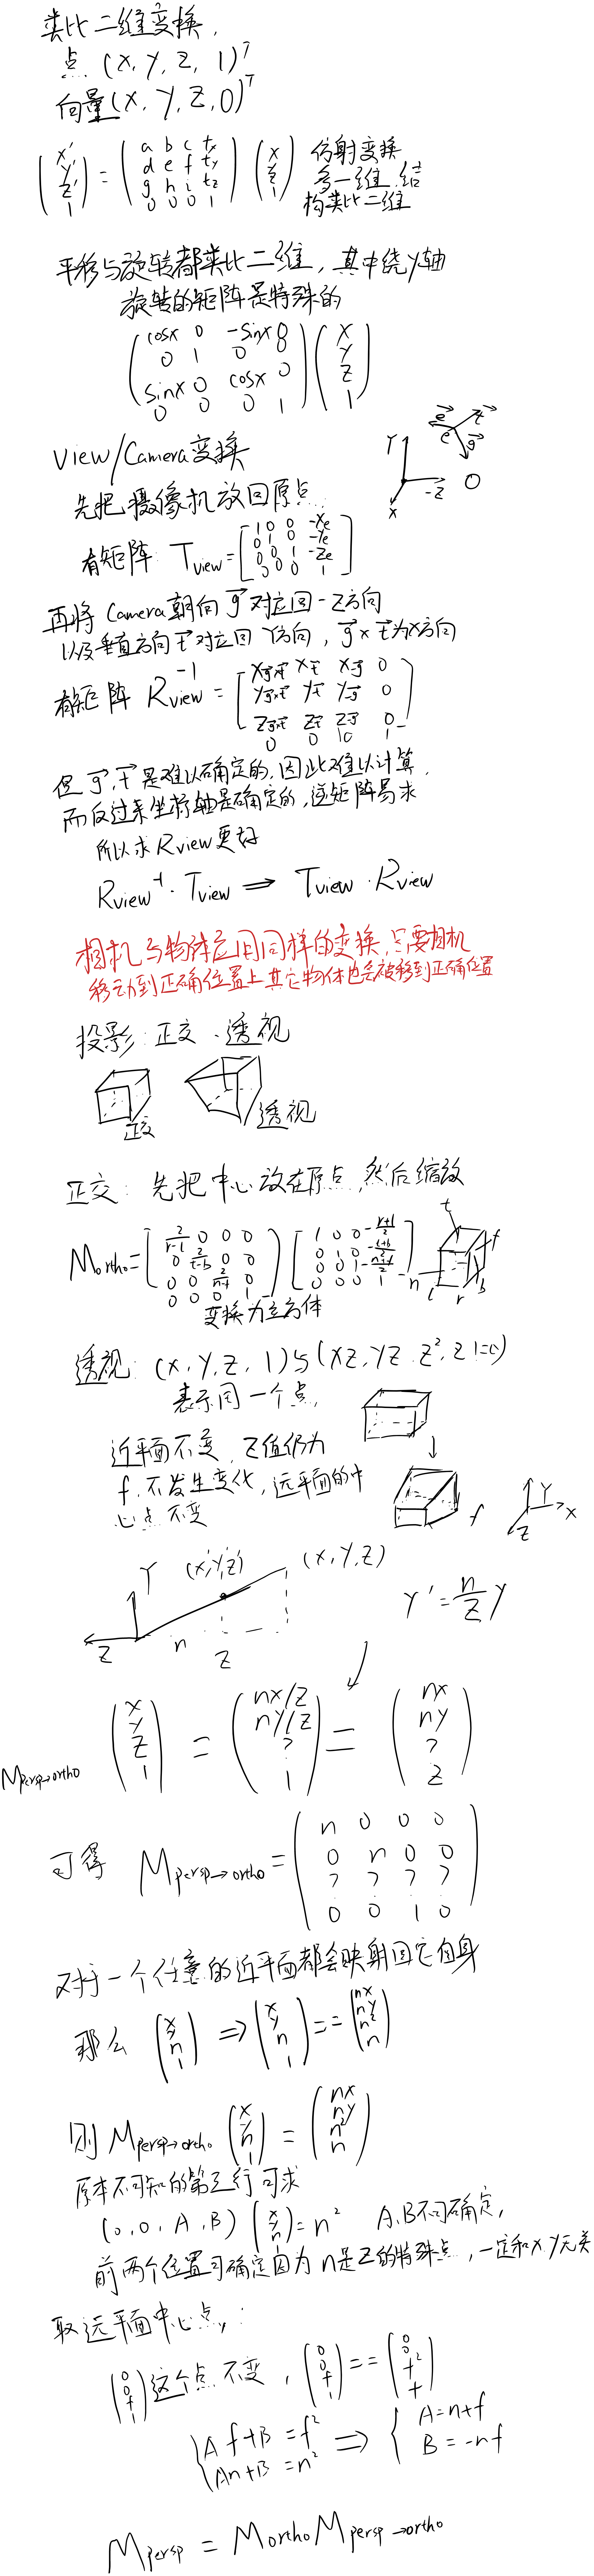 类比二维变换,
点 (x, y, z, 1)ᵀ
向量(x, y, z, 0)ᵀ
(x' y' z' 1) = (a b c tx
d e f ty
g h i tz
0 0 0 1) (x y z 1) 仿射变换
多一维,结
构类比二维
平移与旋转都类比二维,其中绕y轴
旋转的矩阵是特殊的
(cosx 0 -sinx 0
0 1 0 0
sinx 0 cosx 0
0 0 0 1) (x y z 1)
View/Camera变换
先把摄像机放回原点
有矩阵: Tview = [1 0 0 -xe
0 1 0 -ye
0 0 1 -ze
0 0 0 1]
Y
-Z
X
e
t
g
再将 Camera朝向 g 对应回 -Z方向
以及垂直方向 t 对应回 Y方向, g×t为X方向
有矩阵 Rview⁻¹ = [Xg×t Xt X-g 0
Yg×t Yt Y-g 0
Zg×t Zt Z-g 0
0 0 0 1]
但 g, t 是难以确定的,因此难以计算
而反过来坐标轴是确定的,逆矩阵易求
所以求Rview更好
Rview⁻¹·Tview ⇒ Tview·Rview
相机与物体应用同样的变换,只要相机
移动到正确位置上其它物体也会被移到正确位置
投影: 正交、透视
正交
透视
正交: 先把中心放在原点,然后缩放
Mortho = [2/r-l 0 0 0
0 2/t-b 0 0
0 0 2/n-f 0
0 0 0 1] [1 0 0 -r+l/2
0 1 0 -t+b/2
0 0 1 -n+f/2
0 0 0 1]
n t f l r b
变换为立方体
透视: (x, y, z, 1)与(xz, yz, z², z !=0)
表示同一个点,
近平面不变, z值仍为
f, 不发生变化, 远平面的中
心点不变
f
Y
X
Z
Y (x',y',z') (x, y, z)
Z n z
y' = n/z y
Mpersp→ortho (x y z 1) = (nx/z ny/z ? 1) == (nx ny ? z)
可得 Mpersp→ortho = (n 0 0 0
0 n 0 0
? ? ? ?
0 0 1 0)
对于一个任意的近平面都会映射回它自身
那么 (x y n 1) ⇒ (x y n 1) == (nx ny n² n)
则 Mpersp→ortho (x y n 1) = (nx ny n² n)
原本不可知的第三行可求
(0, 0, A, B) (x y n 1) = n² A、B不可确定,
前两个位置可确定因为 n是z的特殊点,一定和xy无关
取远平面中心点,:
(0 0 f 1)这个点不变, (0 0 f 1) == (0 0 f² f)
{Af+B = f²
An+B = n² ⇒ {A=n+f
B=-nf
Mpersp = Mortho Mpersp→ortho